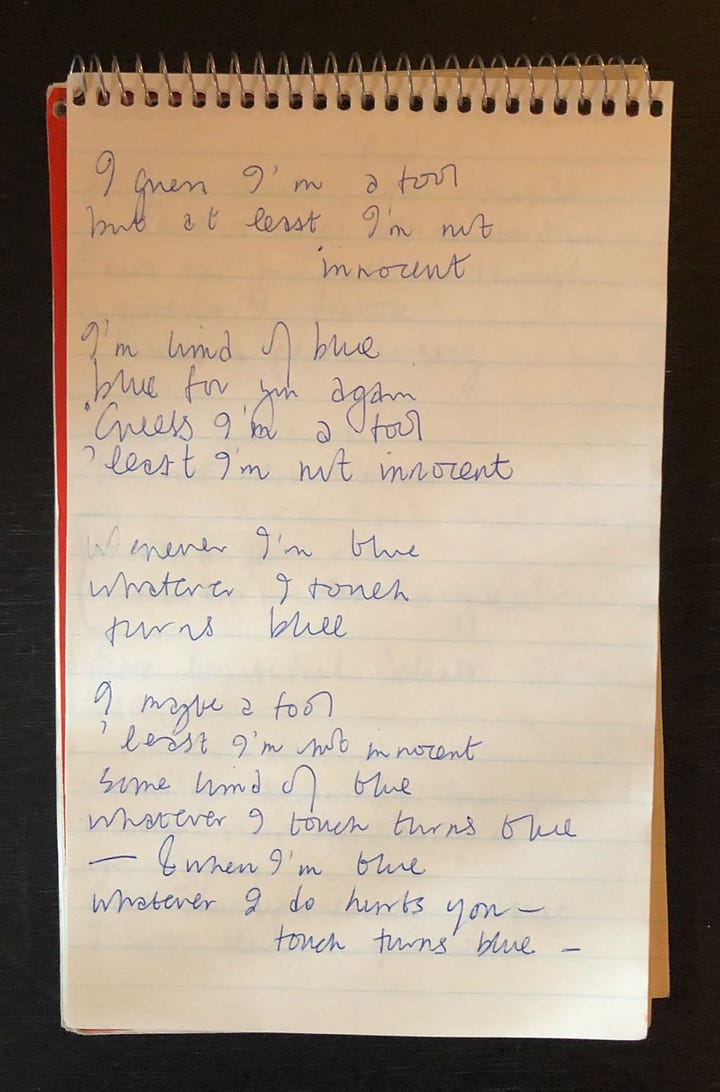 I guess I'm a tool
but at least I'm not
innocent
I'm kind of blue
blue for you again
'Guess I'm a tool
'least I'm not innocent
Whenever I'm blue
whatever I touch
turns blue
I maybe a tool
'least I'm not innocent
some kind of blue
whatever I touch turns blue
— & when I'm blue
whatever I do hurts you —
touch turns blue —